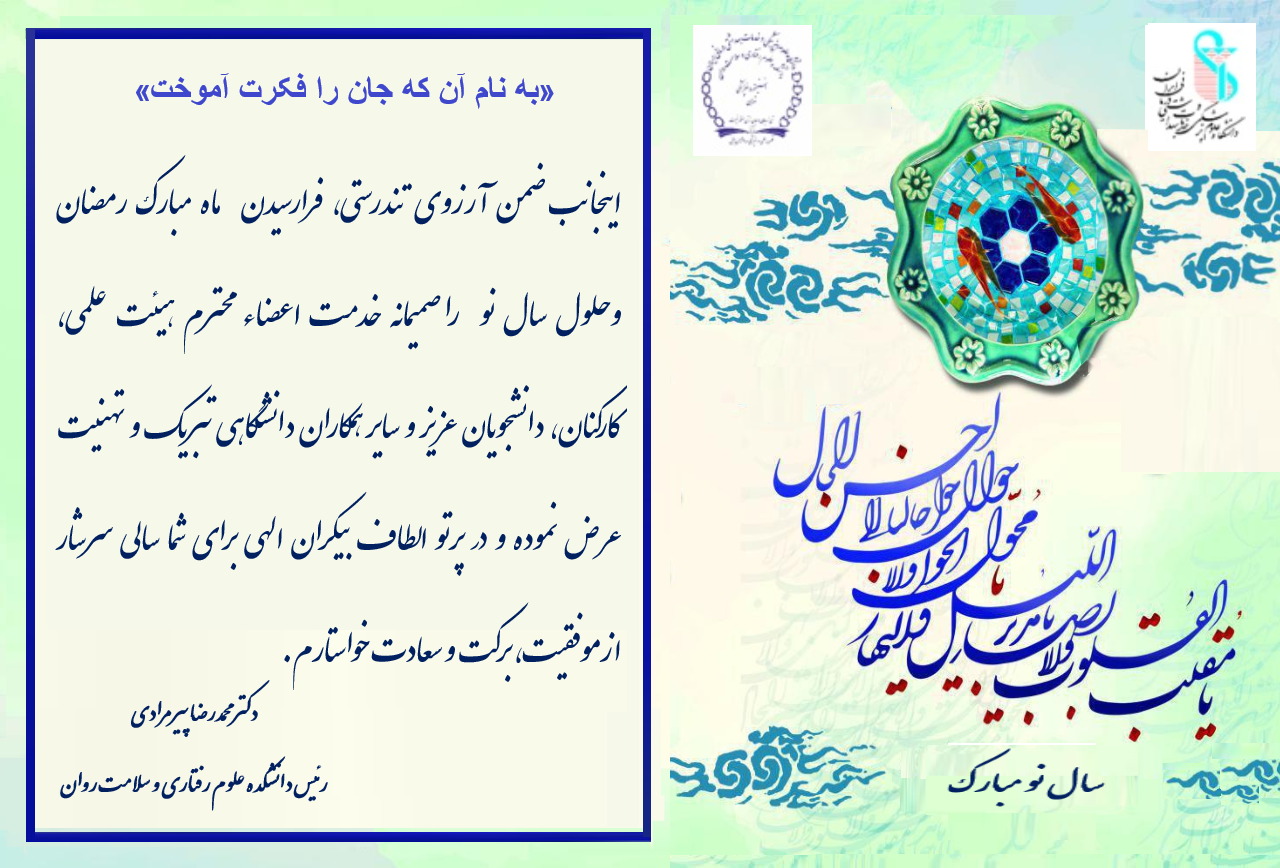 «به نام آن که جان را فکرت آموخت»
اینجانب ضمن آرزوی تندرستی، فرارسیدن ماه مبارک رمضان
وحلول سال نو را صمیمانه خدمت اعضاء محترم هیئت علمی،
کارکنان، دانشجویان عزیز و سایر همکاران دانشگاهی تبریک و تهنیت
عرض نموده و در پرتو الطاف بیکران الهی برای شما سالی سرشار
از موفقیت، برکت و سعادت خواستارم.
دکتر محمدرضا پیرمرادی
رئیس دانشکده علوم رفتاری و سلامت روان
یا مقلب القلوب والابصار
یا مدبر اللیل والنهار
یا محول الحول والاحوال
حول حالنا الی احسن الحال
سال نو مبارک